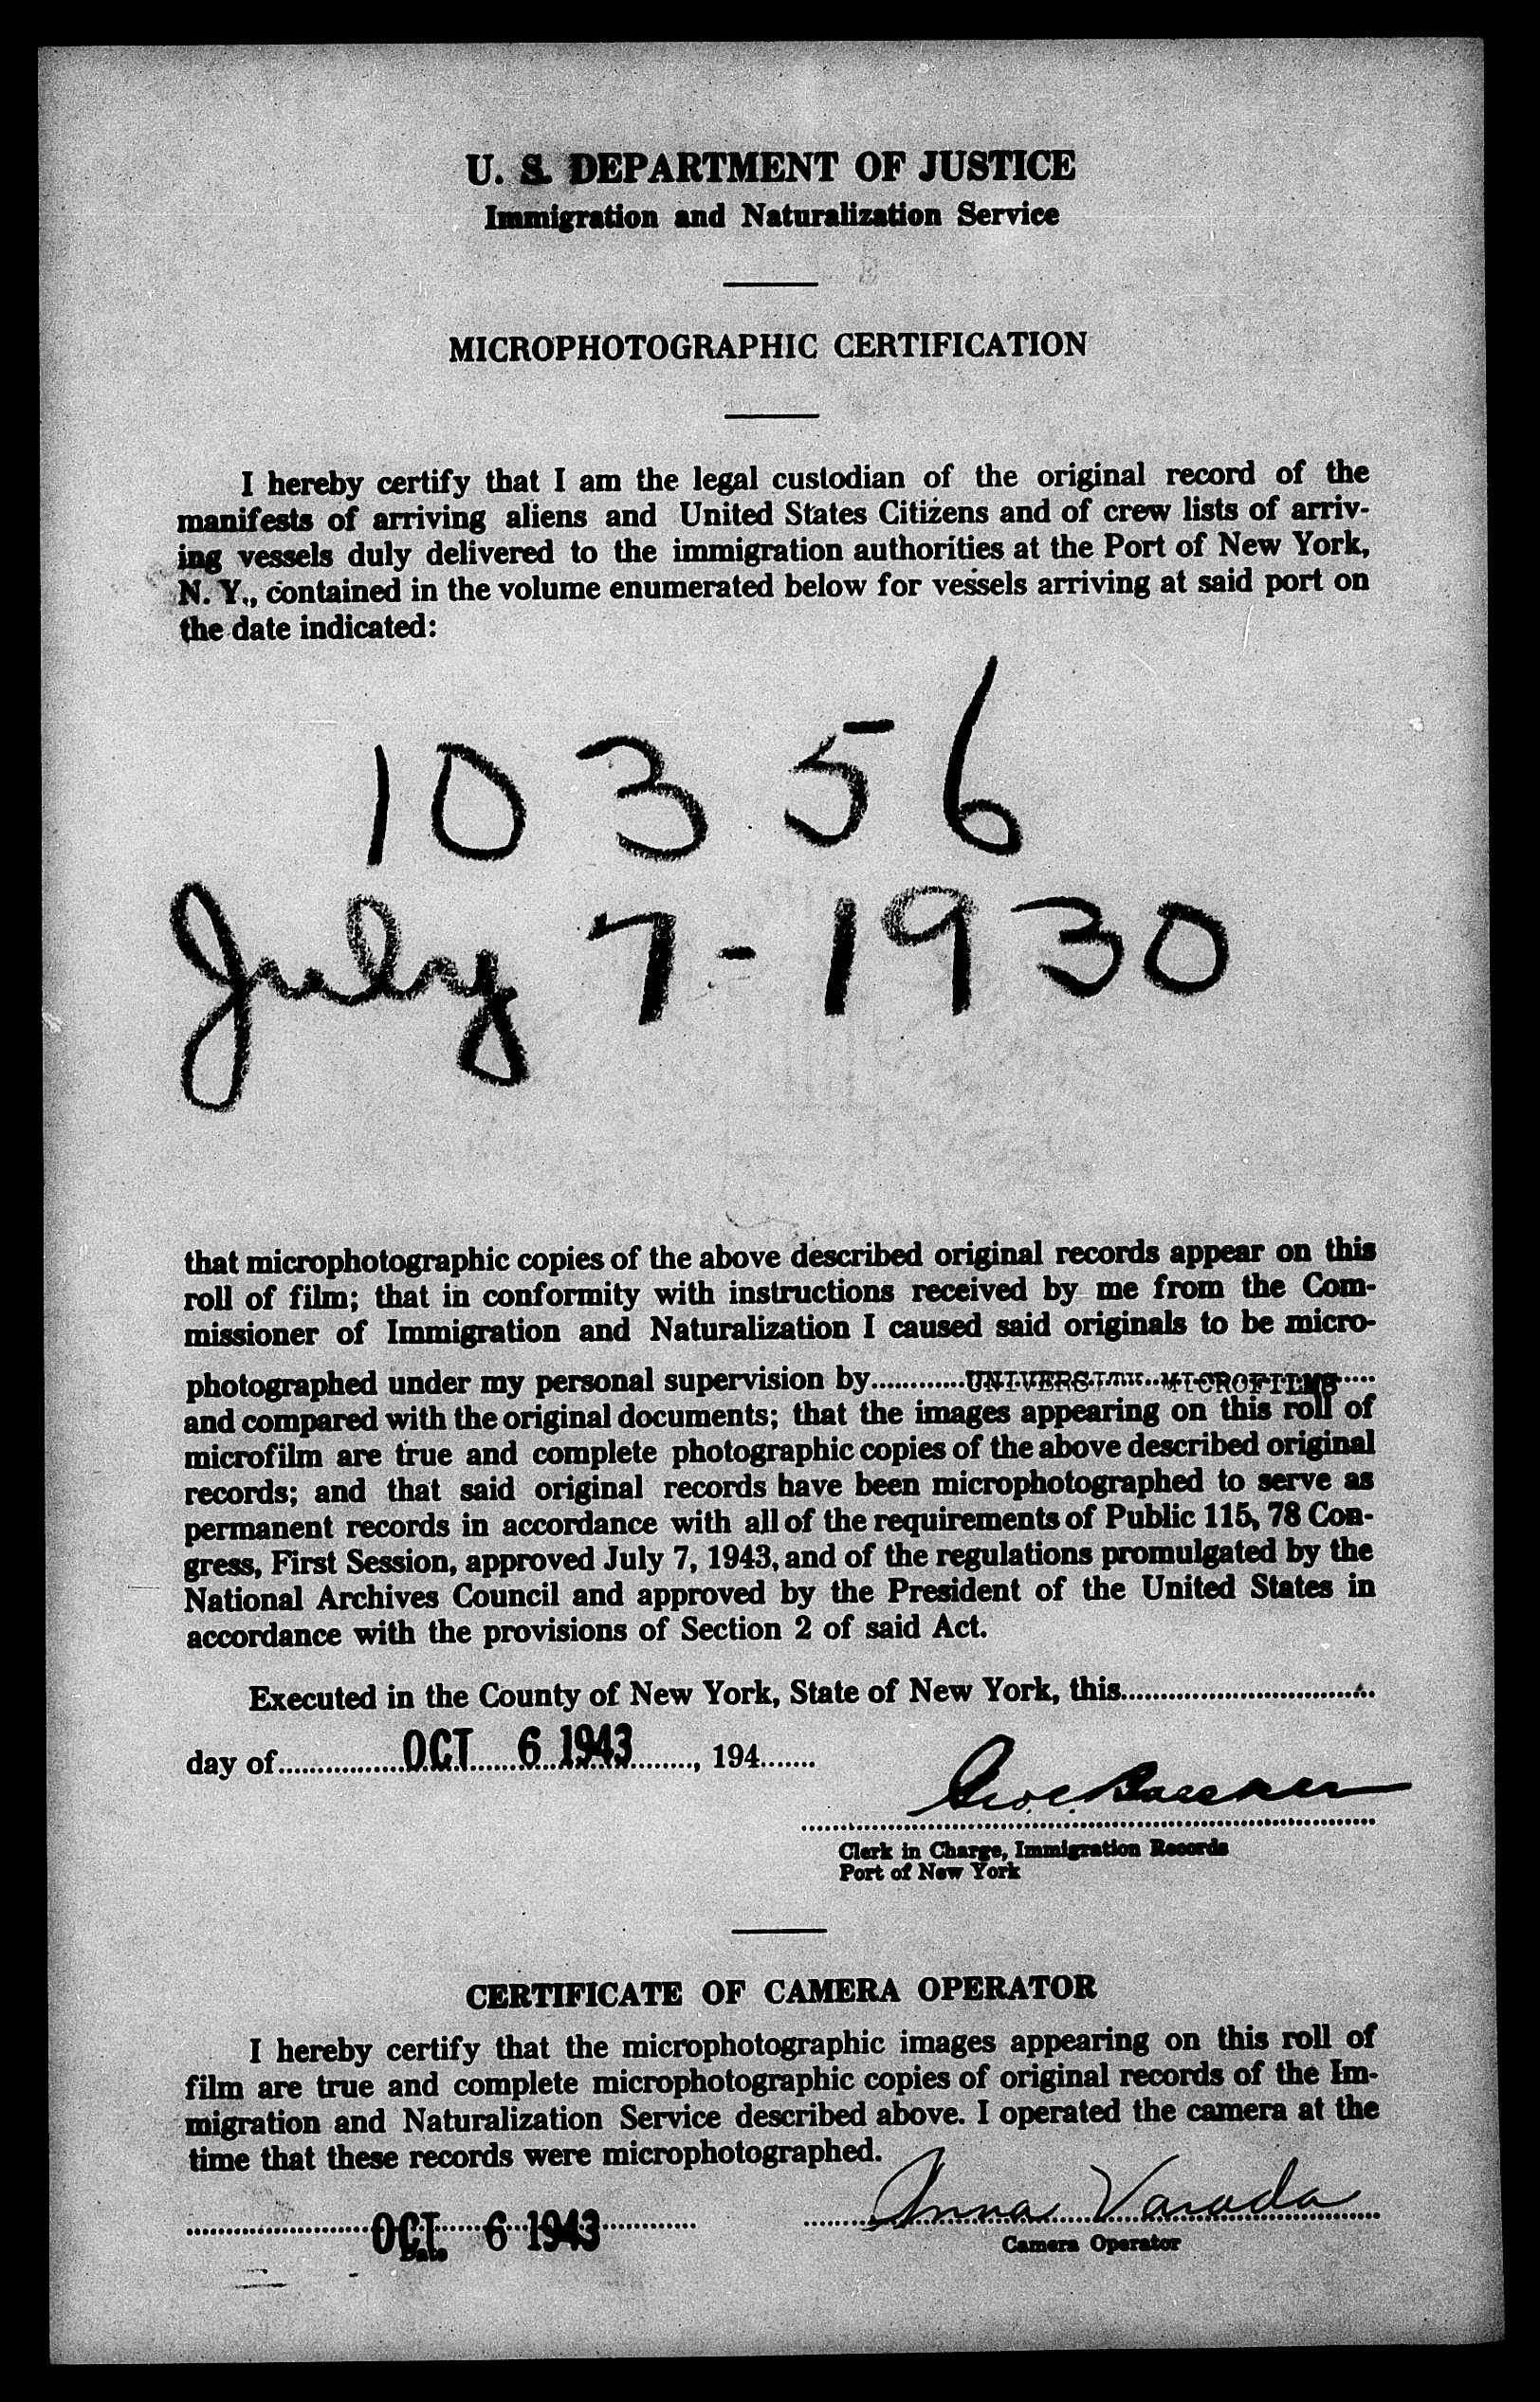 U. S. DEPARTMENT OF JUSTICE
Immigration and Naturalization Service
MICROPHOTOGRAPHIC CERTIFICATION
I hereby certify that I am the legal custodian of the original record of the
manifests of arriving aliens and United States Citizens and of crew lists of arriv-
ing vessels duly delivered to the immigration authorities at the Port of New York,
N. Y., contained in the volume enumerated below for vessels arriving at said port on
the date indicated:
10356
July 7-1930
that microphotographic copies of the above described original records appear on this
roll of film; that in conformity with instructions received by me from the Com-
missioner of Immigration and Naturalization I caused said originals to be micro-
photographed under my personal supervision by UNIVERSITY MICROFILMS
and compared with the original documents; that the images appearing on this roll of
microfilm are true and complete photographic copies of the above described original
records; and that said original records have been microphotographed to serve as
permanent records in accordance with all of the requirements of Public 115, 78 Con-
gress, First Session, approved July 7, 1943, and of the regulations promulgated by the
National Archives Council and approved by the President of the United States in
accordance with the provisions of Section 2 of said Act.
Executed in the County of New York, State of New York, this
day of OCT 6 1943, 194
Clerk in Charge, Immigration Records
Port of New York
CERTIFICATE OF CAMERA OPERATOR
I hereby certify that the microphotographic images appearing on this roll of
film are true and complete microphotographic copies of original records of the Im-
migration and Naturalization Service described above. I operated the camera at the
time that these records were microphotographed.
OCT. 6 1943 Anna Varada
Date Camera Operator